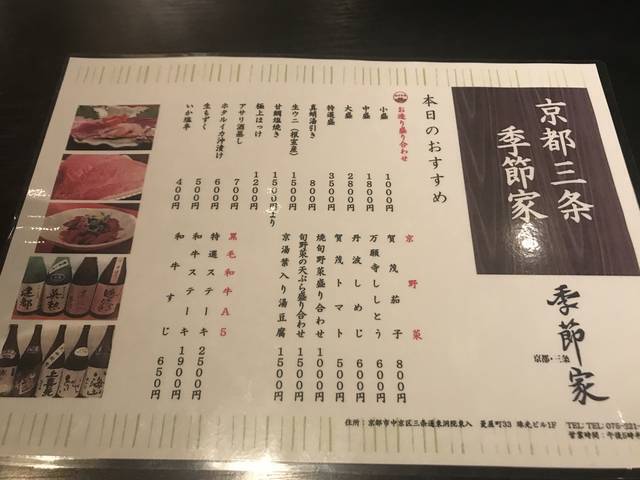 京都三条
季節家
季節家
京都・三条
本日のおすすめ
お造り盛り合わせ
小盛 1000円
中盛 1800円
大盛 2800円
特選盛 3500円
真鯛湯引き 800円
生ウニ（根室産） 1500円
甘鯛塩焼き 1500円より
極上ほっけ 1200円
アサリ酒蒸し 700円
ホタルイカ沖漬け 600円
生もずく 500円
いか塩辛 400円
京野菜
賀茂茄子 800円
万願寺ししとう 600円
丹波しめじ 600円
賀茂トマト 500円
焼旬野菜盛り合わせ 1000円
旬野菜の天ぷら盛り合わせ 1500円
京湯葉入り湯豆腐 1500円
黒毛和牛A5
特選ステーキ 2500円
和牛ステーキ 1900円
和牛すじ 650円
住所：京都市中京区三条通東洞院東入 菱屋町33 珠光ビル1F
TEL: TEL: 075-221-
営業時間：午後5時半